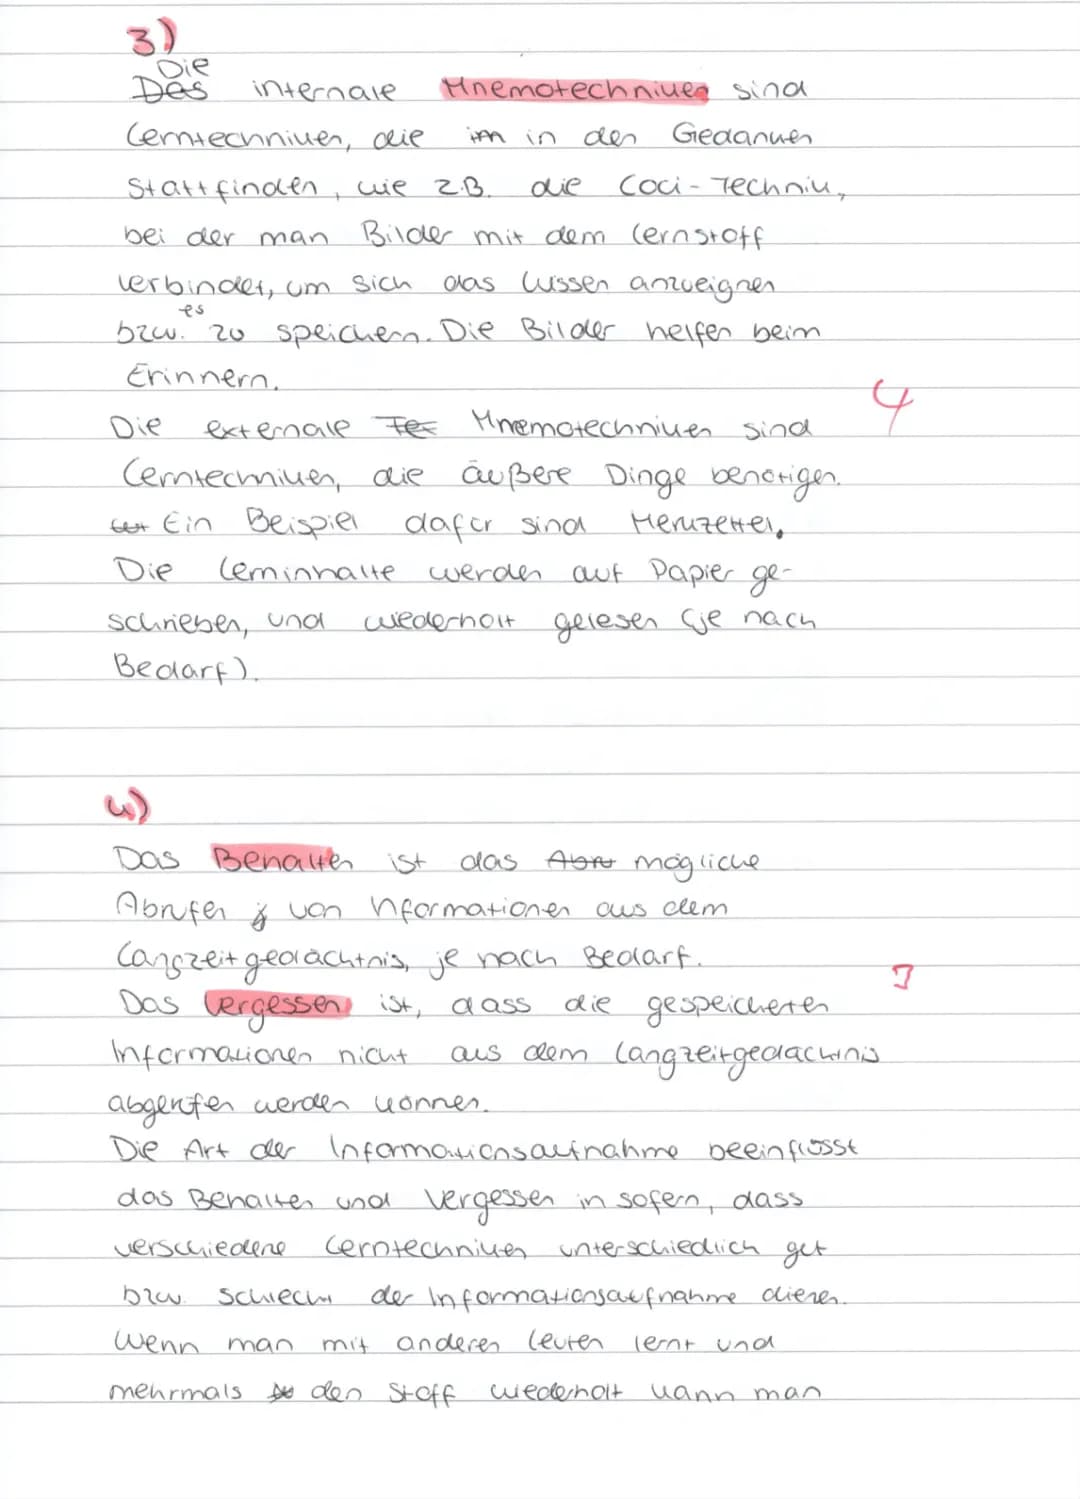 3)
Die
Des internale Mnemotechniken sind
Lerntechniken, die im in den Gedanken
stattfinden, wie z.B. die Loci-Technik,
bei der man Bilder mit dem Lernstoff
verbindet, um sich das Wissen anzueignen
es
bzw. zu speichern. Die Bilder helfen beim
Erinnern.
4
Die externale Tec Mnemotechniken sind
Lerntechniken, die äußere Dinge benötigen.
Ein Beispiel dafür sind Merkzettel.
Die Lerninhalte werden auf Papier ge-
schrieben, und wiederholt gelesen (je nach
Bedarf).
4)
Das Behalten ist das Abru mögliche
Abrufen von Informationen aus dem
Langzeitgedächtnis, je nach Bedarf.
Das Vergessen ist, dass die gespeicherten
Informationen nicht aus dem Langzeitgedächtnis
abgerufen werden können.
Die Art der Informationsaufnahme beeinflusst
das Behalten und Vergessen in sofern, dass
verschiedene Lerntechniken unterschiedlich gut
bzw. schlecht der Informationsaufnahme dienen.
Wenn man mit anderen Leuten lernt und
mehrmals den Stoff wiederholt kann man